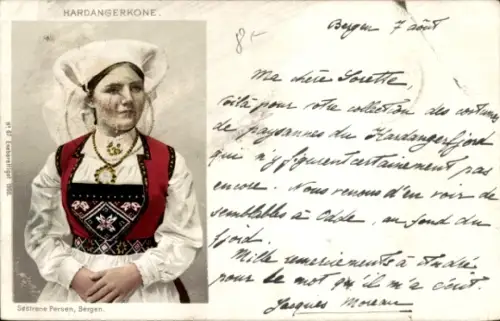 HARDANGERKONE.
Bergen 7 août
Ma chère Lorette,
voilà pour votre collection des costumes
de paysannes du Hardangerfjord
qui n'y figurent certainement pas
encore. Nous venons d'en voir de
semblables à Odde, au fond du
fjord.
Mille remerciements à André
pour le mot qu'il m'a écrit.
Jacques Moreau
Eneberettiget 1902.
Søstrene Persen, Bergen.